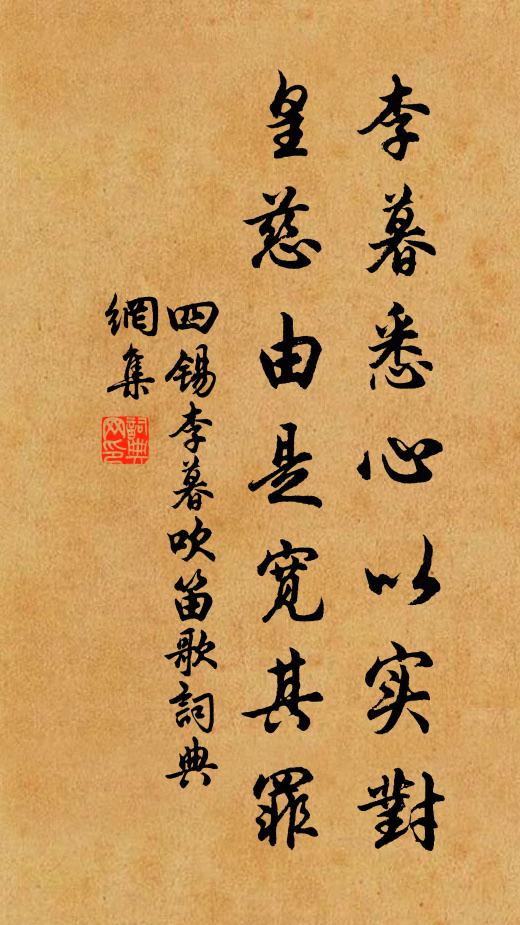 李暮悉心以实對
皇慈由是寛其罪
四锡李暮吹笛歌詞典
網集
詞典
网印